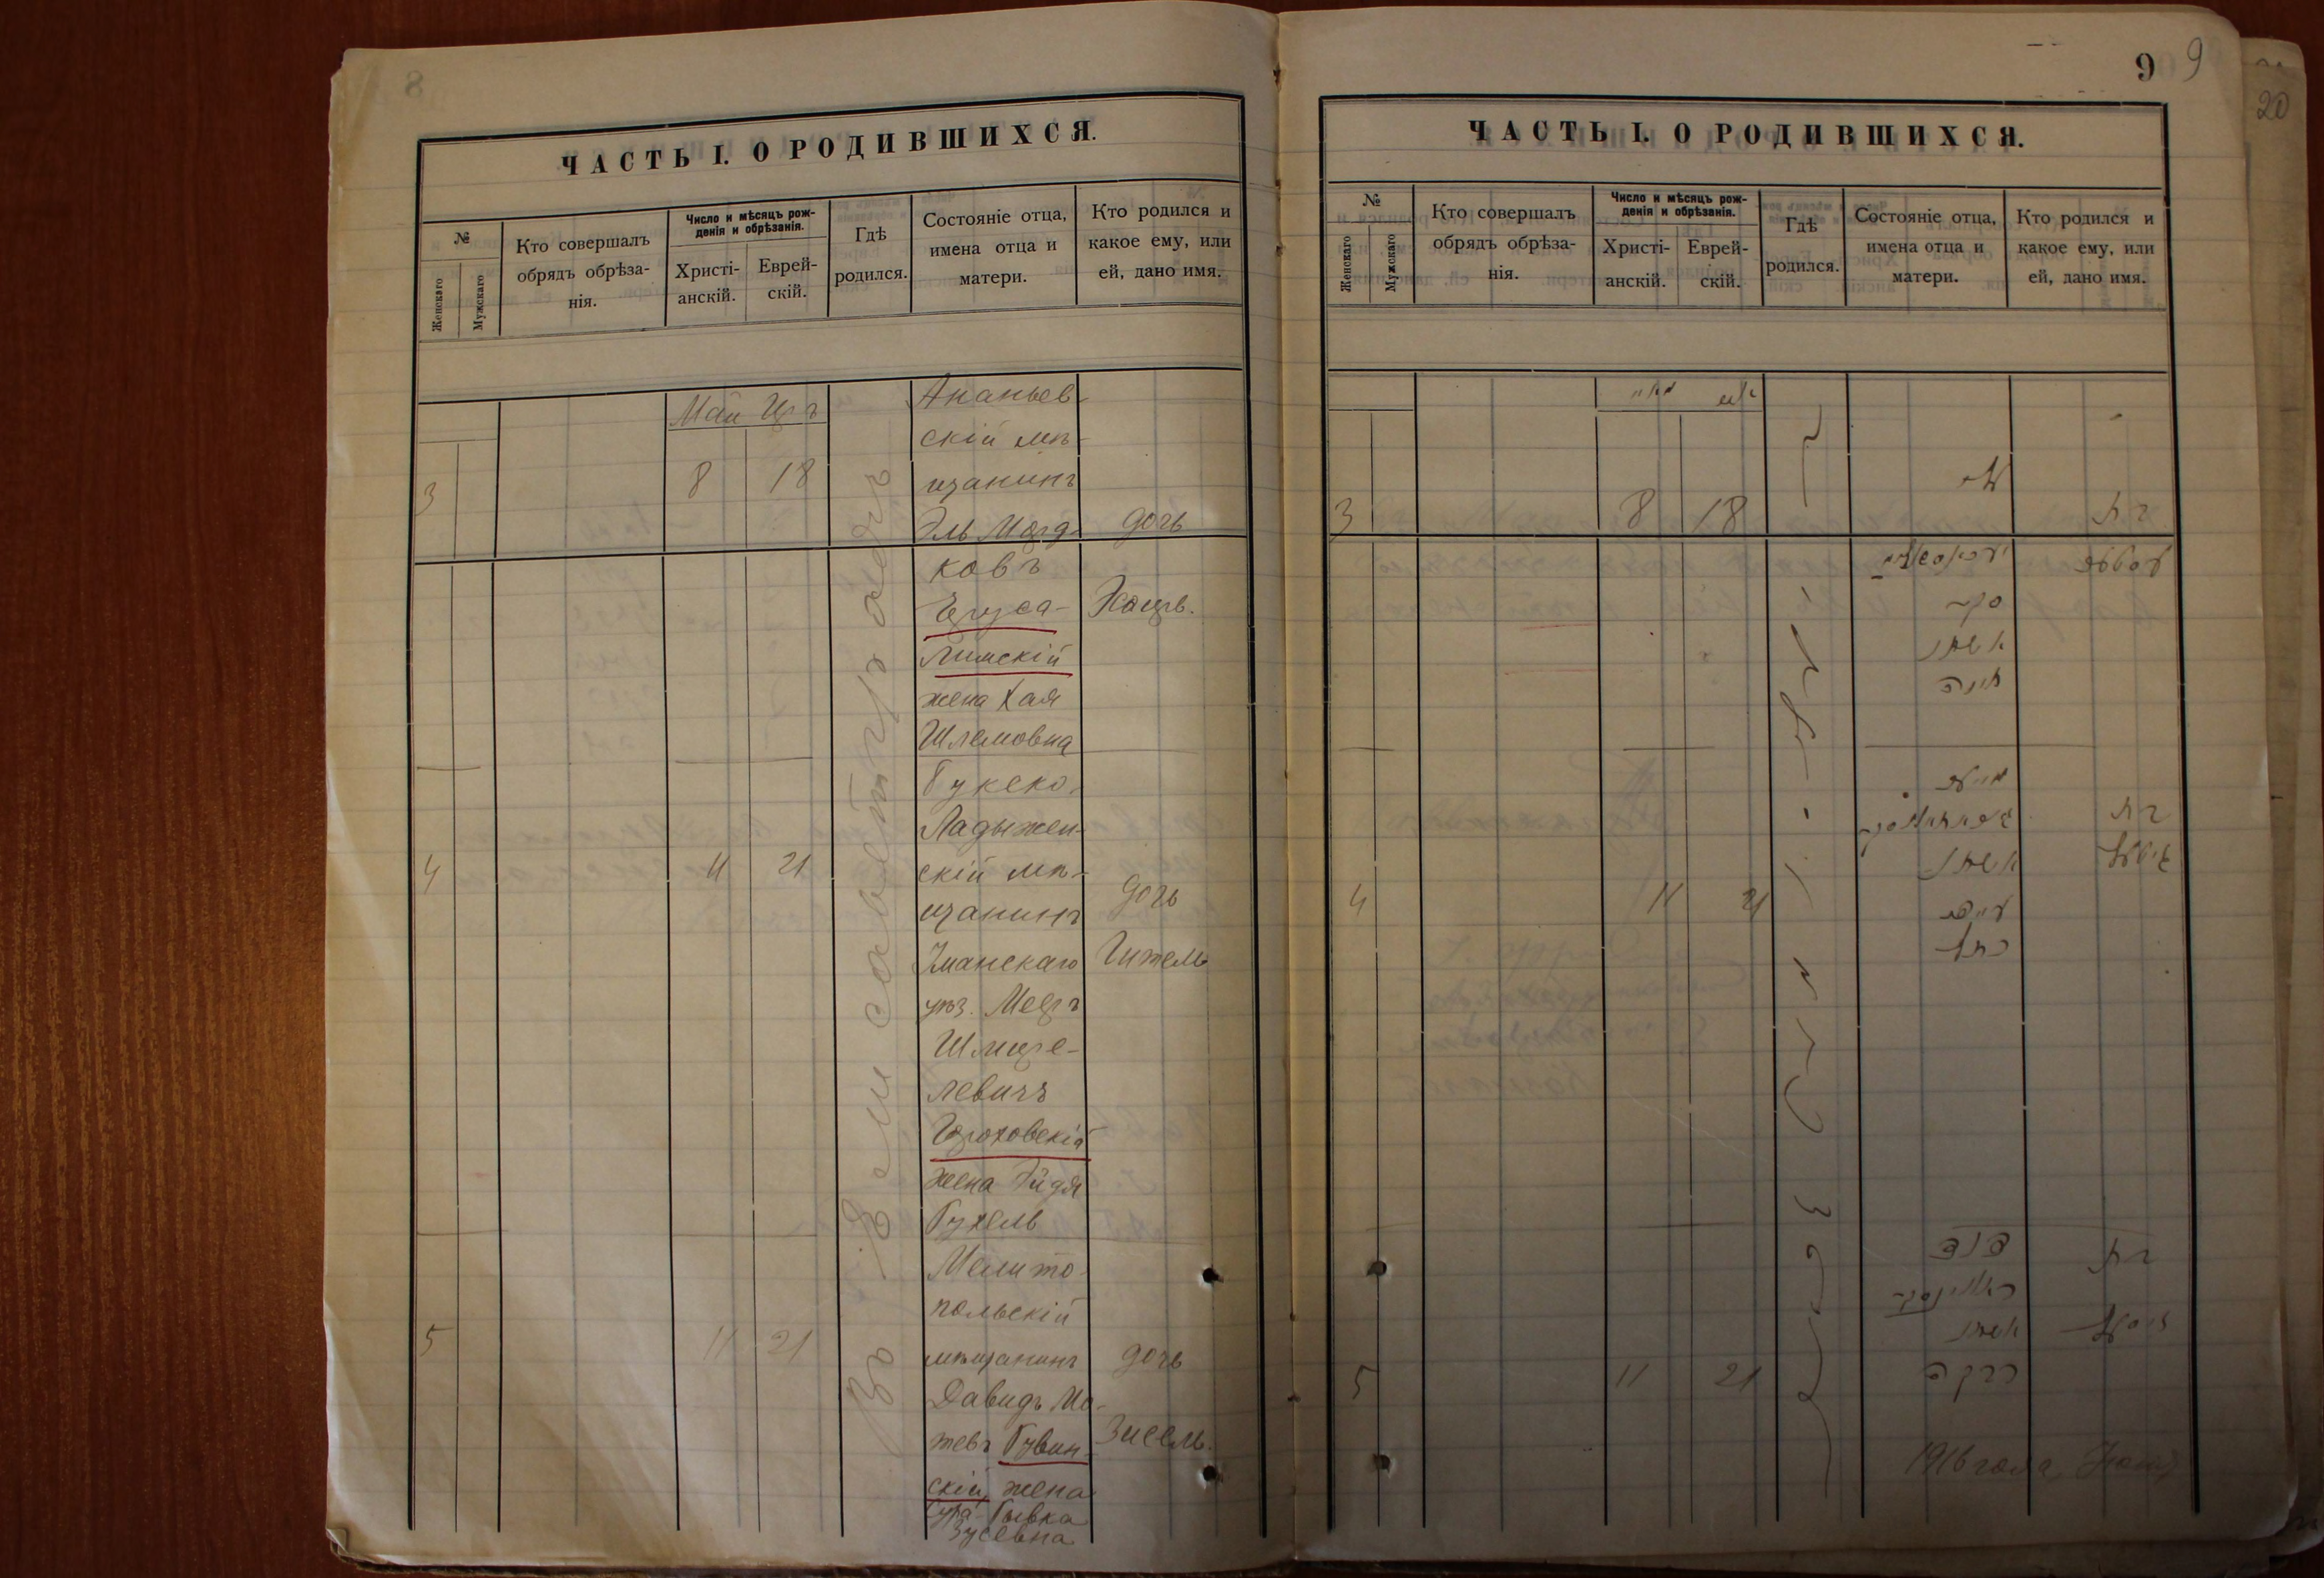 8
ЧАСТЬ I. О РОДИВШИХСЯ.
№
Женскаго
Мужскаго
Кто совершалъ
обрядъ обрѣза-
нія.
Число и мѣсяцъ рож-
денія и обрѣзанія.
Христі-
анскій.
Еврей-
скій.
Гдѣ
родился.
Состояніе отца,
имена отца и
матери.
Кто родился и
какое ему, или
ей, дано имя.
Май Иръ
3
8
18
Въ Елисаветградѣ
Ананьев-
скій мѣ-
щанинъ
Эль Морд-
ковъ
Еруса-
лимскій
жена Хая
Шлемовна
дочь
4
11
21
Ладыжен-
скій мѣ-
щанинъ
Уманскаго
уѣз. Мееръ
левичъ
Гороховскій
жена Эйдя
Рухель
дочь
Гитель
5
11
21
Мелито-
польскій
мѣщанинъ
Давидъ Мо-
шевъ Рувин-
скій, жена
Сура-Рывка
Зусевна
дочь
Зисель.
9 9
20
ЧАСТЬ I. О РОДИВШИХСЯ.
№
Женскаго
Мужскаго
Кто совершалъ
обрядъ обрѣза-
нія.
Число и мѣсяцъ рож-
денія и обрѣзанія.
Христі-
анскій.
Еврей-
скій.
Гдѣ
родился.
Состояніе отца,
имена отца и
матери.
Кто родился и
какое ему, или
ей, дано имя.
3
8
18
בת
ירוסאלימ
סקי
אשתו
חיה
4
11
21
אשתו
רחל
בת
גיטל
5
11
21
דוד
אשתו
רבקה
בת
זיסל
1916 года